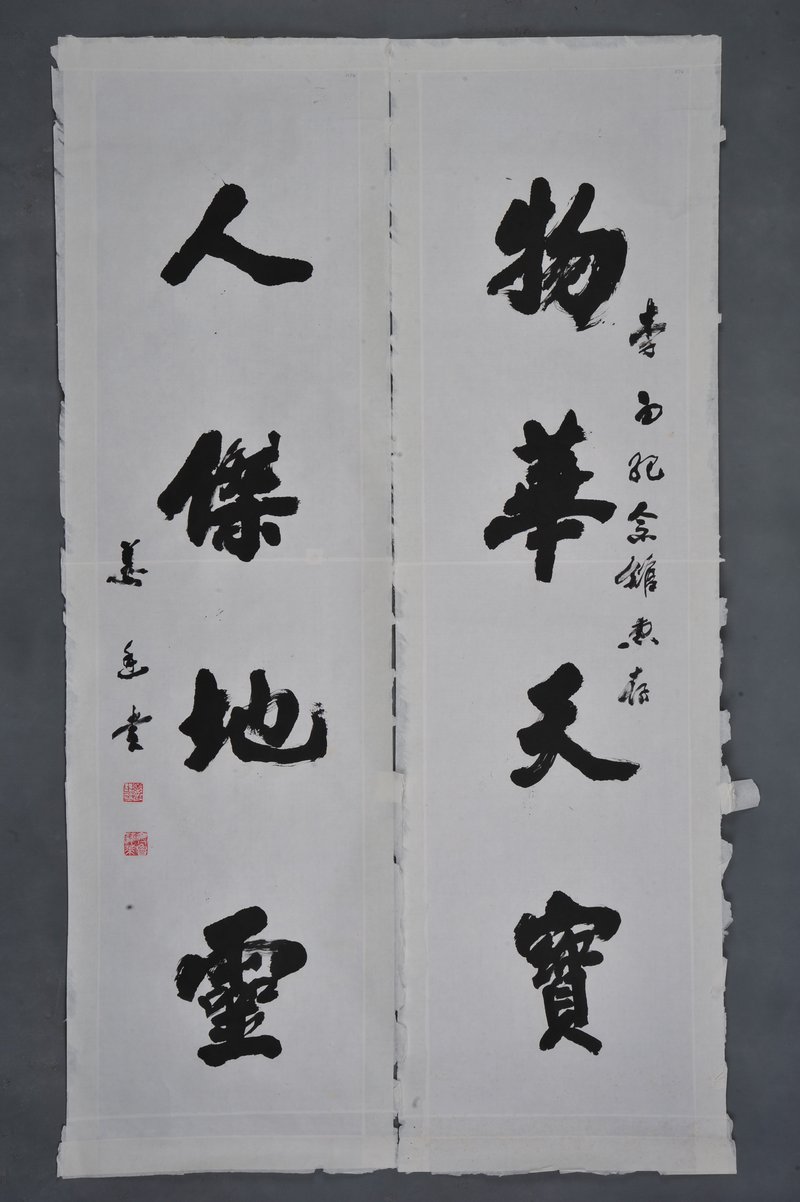 物華天寶
李白紀念館惠存
人傑地靈